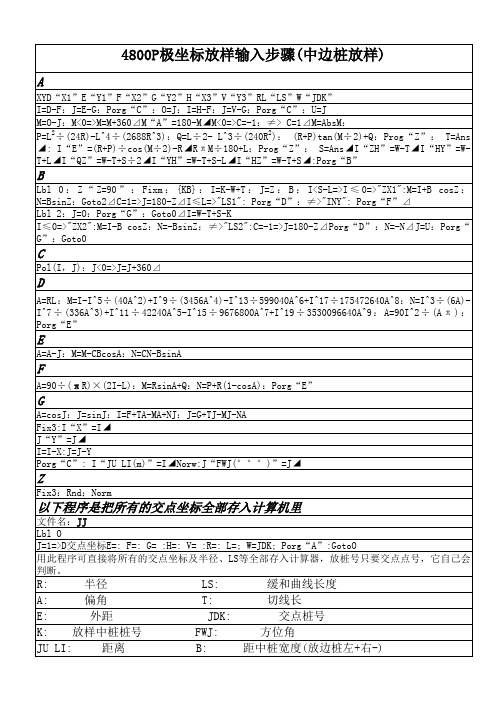 4800P极坐标放样输入步骤(中边桩放样)
A
XYD“X1”E“Y1”F“X2”G“Y2”H“X3”V“Y3”RL“LS”W“JDK”
I=D-F：J=E-G：Porg“C”：O=J：I=H-F：J=V-G：Porg“C”：U=J
M=O-J：M<0=>M=M+360⊿M“A”=180-M◢M<0=>C=-1：≠> C=1⊿M=AbsM：
P=L²÷(24R)-L^4÷(2688R^3)：Q=L÷2- L^3÷(240R²)： (R+P)tan(M÷2)+Q：Prog“Z”： T=Ans◢: I“E”=(R+P)÷cos(M÷2)-R◢RπM÷180+L：Prog“Z”： S=Ans◢I“ZH”=W-T◢I“HY”=W-T+L◢I“QZ”=W-T+S÷2◢I“YH”=W-T+S-L◢I“HZ”=W-T+S◢:Porg“B”
B
Lbl 0：Z“Z=90”：Fixm：{KB}：I=K-W+T：J=Z：B：I<S-L=>I≤0=>"ZX1":M=I+B cosZ：N=BsinZ：Goto2⊿C=1=>J=180-Z⊿I≤L=>"LS1"：Porg“D”：≠>"INY"：Porg“F”⊿
Lbl 2：J=O：Porg“G”：Goto0⊿I=W-T+S-K
I≤0=>"ZX2":M=I-B cosZ：N=-BsinZ：≠>"LS2":C=-1=>J=180-Z⊿Porg“D”：N=-N⊿J=U：Porg“G”：Goto0
C
Pol(I，J)：J<0=>J=J+360⊿
D
A=RL：M=I-I^5÷(40A^2)+I^9÷(3456A^4)-I^13÷599040A^6+I^17÷175472640A^8：N=I^3÷(6A)-I^7÷(336A^3)+I^11÷42240A^5-I^15÷9676800A^7+I^19÷3530096640A^9：A=90I^2÷(Aπ)：Porg“E”
E
A=A-J：M=M-CBcosA：N=CN-BsinA
F
A=90÷(πR)×(2I-L)：M=RsinA+Q：N=P+R(1-cosA)：Porg“E”
G
A=cosJ：J=sinJ：I=F+TA-MA+NJ：J=G+TJ-MJ-NA
Fix3:I“X”=I◢
J“Y”=J◢
I=I-X:J=J-Y
Porg“C”: I“JU LI(m)”=I◢Norw:J“FWJ(° ° °)”=J◢
Z
Fix3：Rnd：Norm
以下程序是把所有的交点坐标全部存入计算机里
文件名：JJ
Lbl 0
J=1=>D交点坐标E=: F=: G= :H=: V= :R=: L=; W=JDK; Porg“A”:Goto0
用此程序可直接将所有的交点坐标及半径、LS等全部存入计算器，放桩号只要交点点号，它自己会判断。
R: 半径 LS: 缓和曲线长度
A: 偏角 T: 切线长
E: 外距 JDK: 交点桩号
K: 放样中桩桩号 FWJ: 方位角
JU LI: 距离 B: 距中桩宽度(放边桩左+右-)